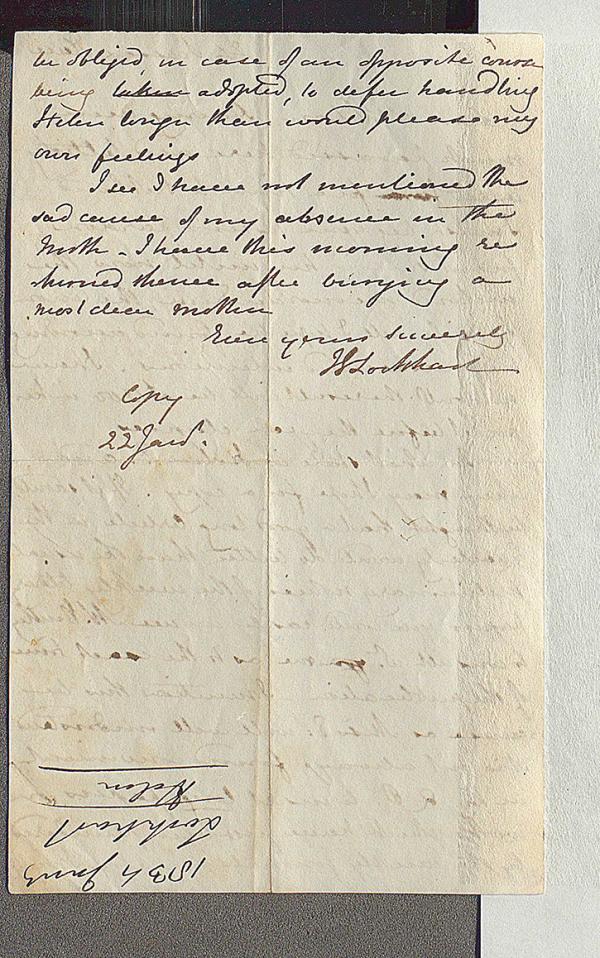 be obliged, in case of an opposite course
being taken adopted, to defer handling
Helen longer than would please my
own feelings
I see I have not mentioned the
sad cause of my absence in the
North - I have this morning re
turned thence after burying a
most dear mother
Ever yours Sincerely
JGLockhart
Copy
22 Jany.
1834 Jany
Lockhart
Helen